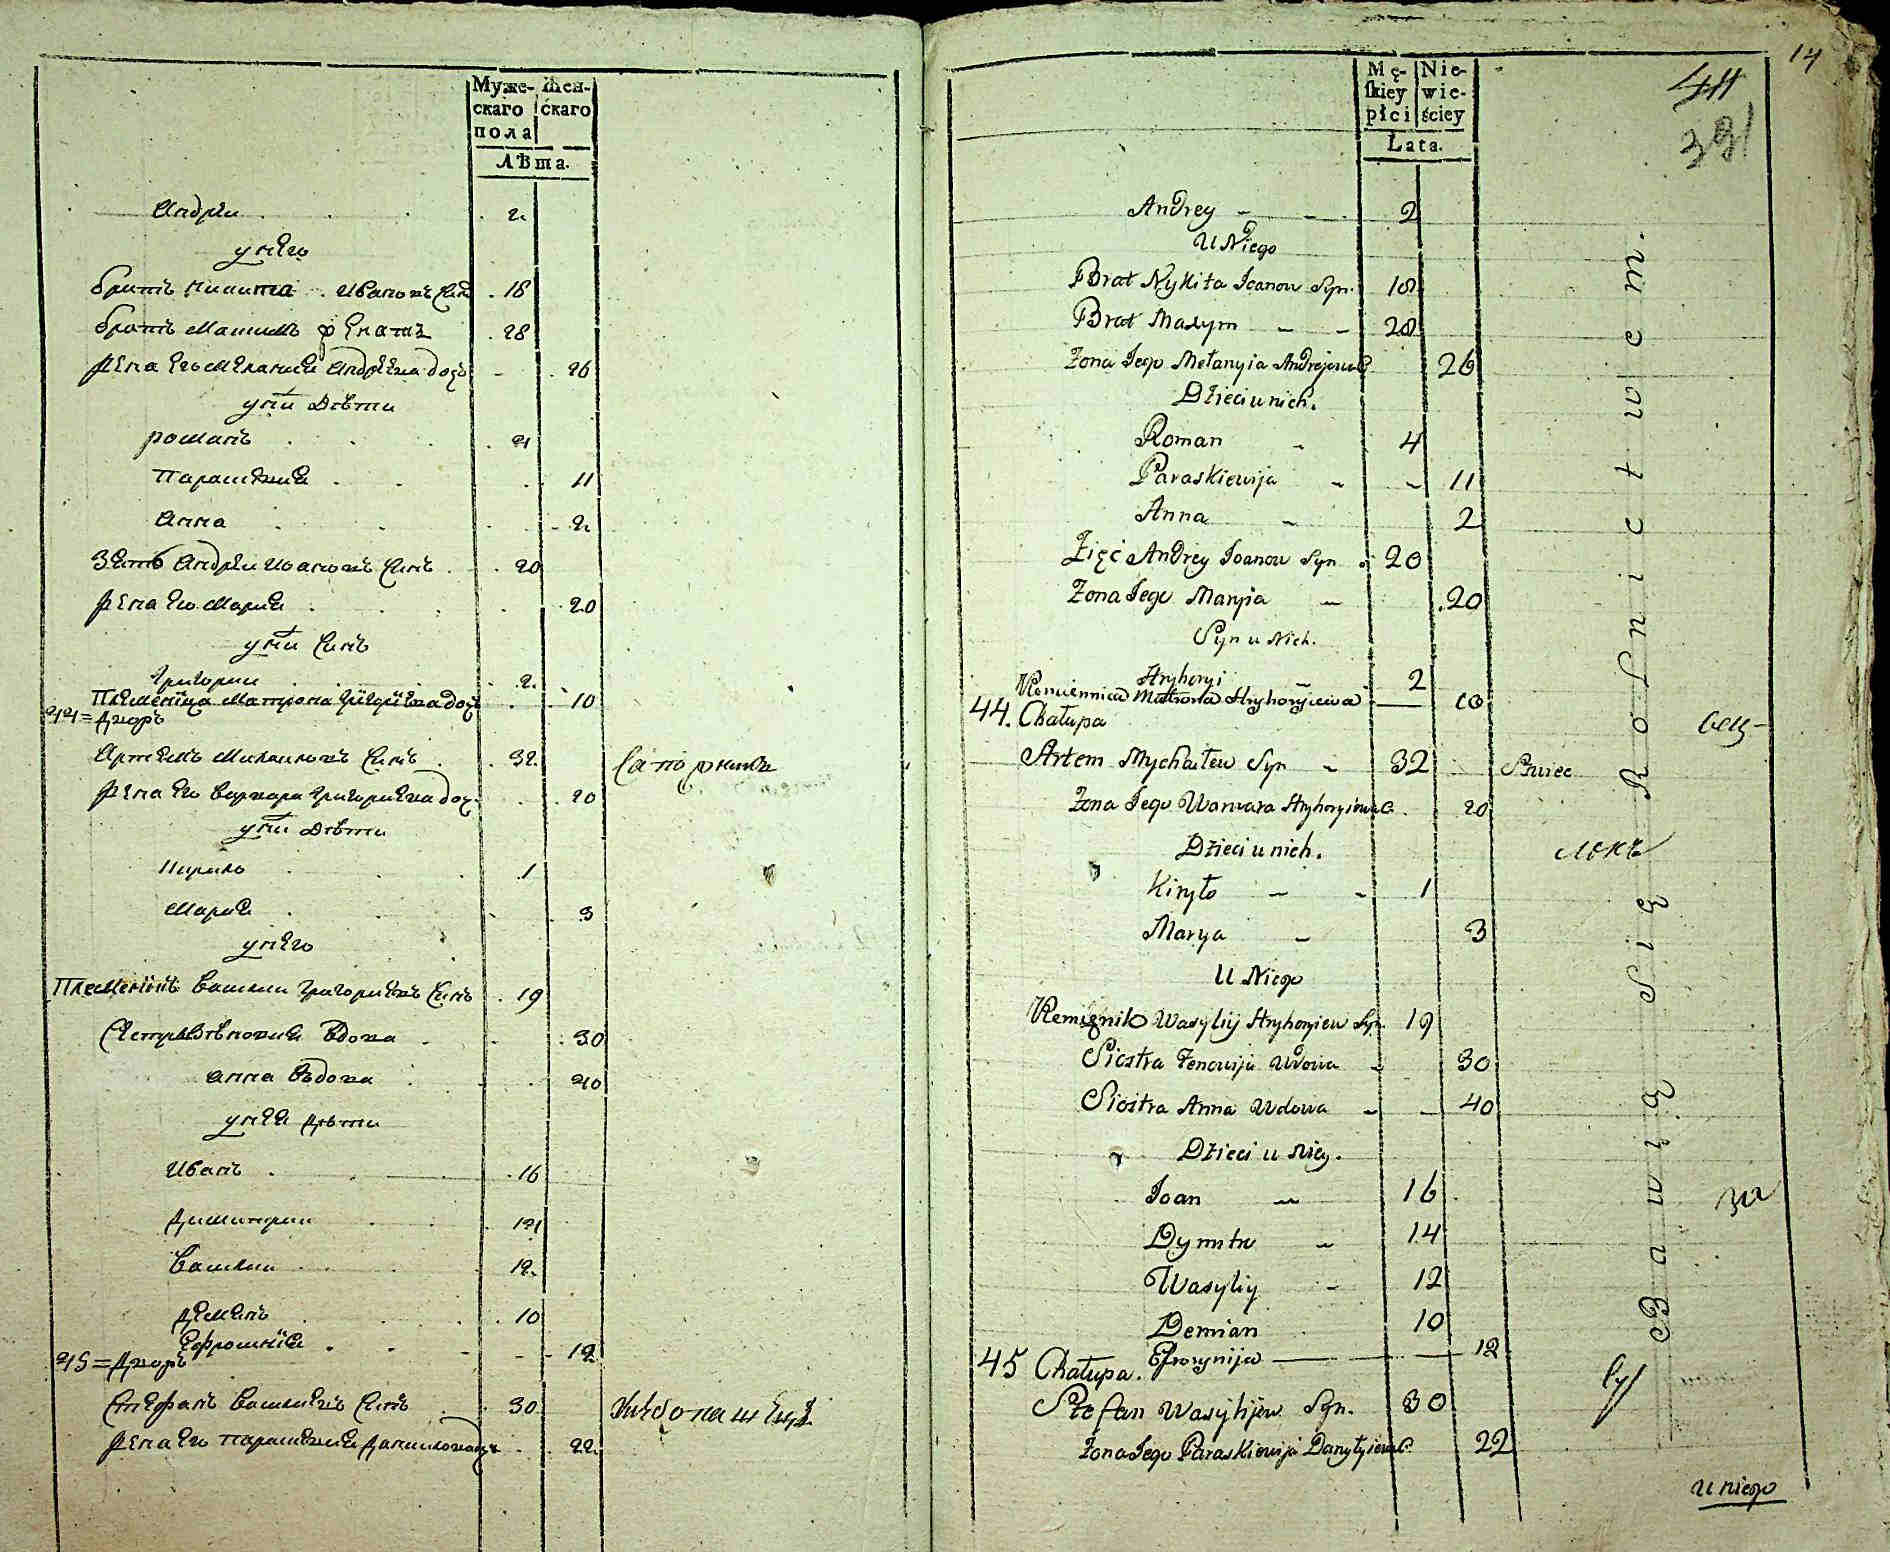 Муже-
скаго
пола
Жен-
скаго
Лѣта.
Андрей 2
у него
братъ Никита Ивановъ синъ 18
братъ Максимъ 28
жена его Мелания Андрѣева доч 26
у них дѣти
романъ 4
Параскевия 11
Анна 2
Зять Андрей Ивановъ синъ 20
жена его Мария 20
у них синъ
Григорий 2
Племеница Матрона Григориева доч 10
44 = Дворъ
Артемъ Михаиловъ синъ 32
жена его Варвара Григориева доч 20
у них дѣти
Кирило 1
Мария 3
у него
Племеникъ Василий Григориевъ синъ 19
Сестра Зѣновия вдова 30
анна вдова 40
у неи дѣти
Иванъ 16
Димитрий 14
Василий 12
Демянъ 10
Ефросиния 12
45 = Дворъ
Стефанъ Василиевъ синъ 30
жена его Параскевия Данилова 22
14
44
391
Mę-
skiey
płci
Nie-
wie-
ściey
Lata.
Andrey 2
U Niego
Brat Nykita Joanow Syn. 18
Brat Maxym 28
Żona Jego Mełanyia Andrejewa C 26
Dzieci u nich.
Roman 4
Paraskiewija 11
Anna 2
Zięć Andrey Joanow Syn 20
Żona Jego Maryia 20
Syn u Nich.
Hryhoryi 2
Plemiennica Matrona Hryhoryiewa 10
44. Chałupa
Artem Mychałew Syn 32 Szwiec
Żona Jego Warwara Hryhoryiewa C. 20
Dzieci u nich.
Kiryło 1
Marya 3
U Niego
Plemięnik Wasyliy Hryhoryiew Syn. 19
Siostra Zenowija Wdowa 30
Siostra Anna Wdowa 40
Dzieci u Niey.
Joan 16
Dymitr 14
Wasyliy 12
Demian 10
Efrozynija 12
45 Chałupa.
Stefan Wasylijew Syn. 30
Żona Jego Paraskiewija Danyłyiewa C. 22
u niego
Bawią Się Rolnictwem.